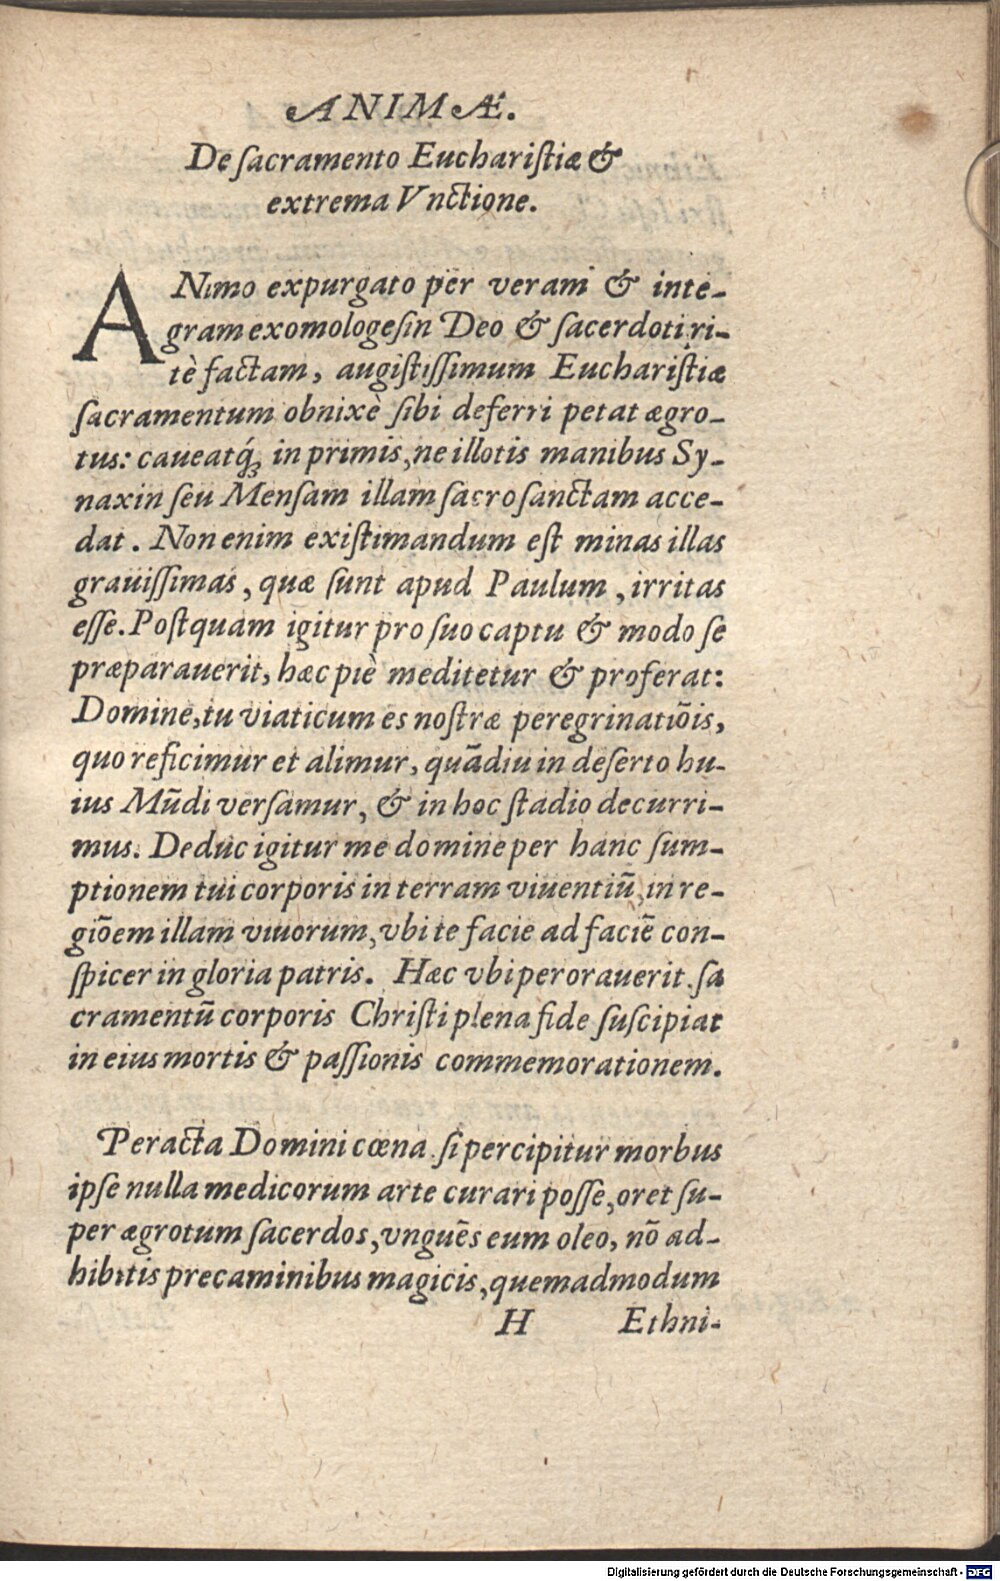 ANIMÆ.
De ſacramento Euchariſtiæ &
extrema Vnctione.
ANimo expurgato per veram & inte-
gram exomologeſin Deo & ſacerdoti ri-
tè factam, auguſtiſſimum Euchariſtiæ
ſacramentum obnixè ſibi deferri petat ægro-
tus: caueatq́; in primis, ne illotis manibus Sy-
naxin ſeu Menſam illam ſacroſanctam acce-
dat. Non enim exiſtimandum eſt minas illas
grauiſſimas, quæ ſunt apud Paulum, irritas
eſſe. Poſtquam igitur pro ſuo captu & modo ſe
præparauerit, hæc piè meditetur & proferat:
Domine, tu viaticum es noſtræ peregrinatiõis,
quo reficimur et alimur, quãdiu in deſerto hu-
ius Mũdi verſamur, & in hoc ſtadio decurri-
mus. Deduc igitur me domine per hanc ſum-
ptionem tui corporis in terram viuentiũ, in re-
giõem illam viuorum, vbi te facie ad faciẽ con-
ſpicer in gloria patris. Hæc vbi perorauerit, ſa
cramentũ corporis Chriſti plena fide ſuſcipiat
in eius mortis & paſſionis commemorationem.
Peracta Domini cœna, ſi percipitur morbus
ipſe nulla medicorum arte curari poſſe, oret ſu-
per ægrotum ſacerdos, vnguẽs eum oleo, nõ ad-
hibitis precaminibus magicis, quemadmodum
H Ethni-
Digitalisierung gefördert durch die Deutsche Forschungsgemeinschaft - DFG